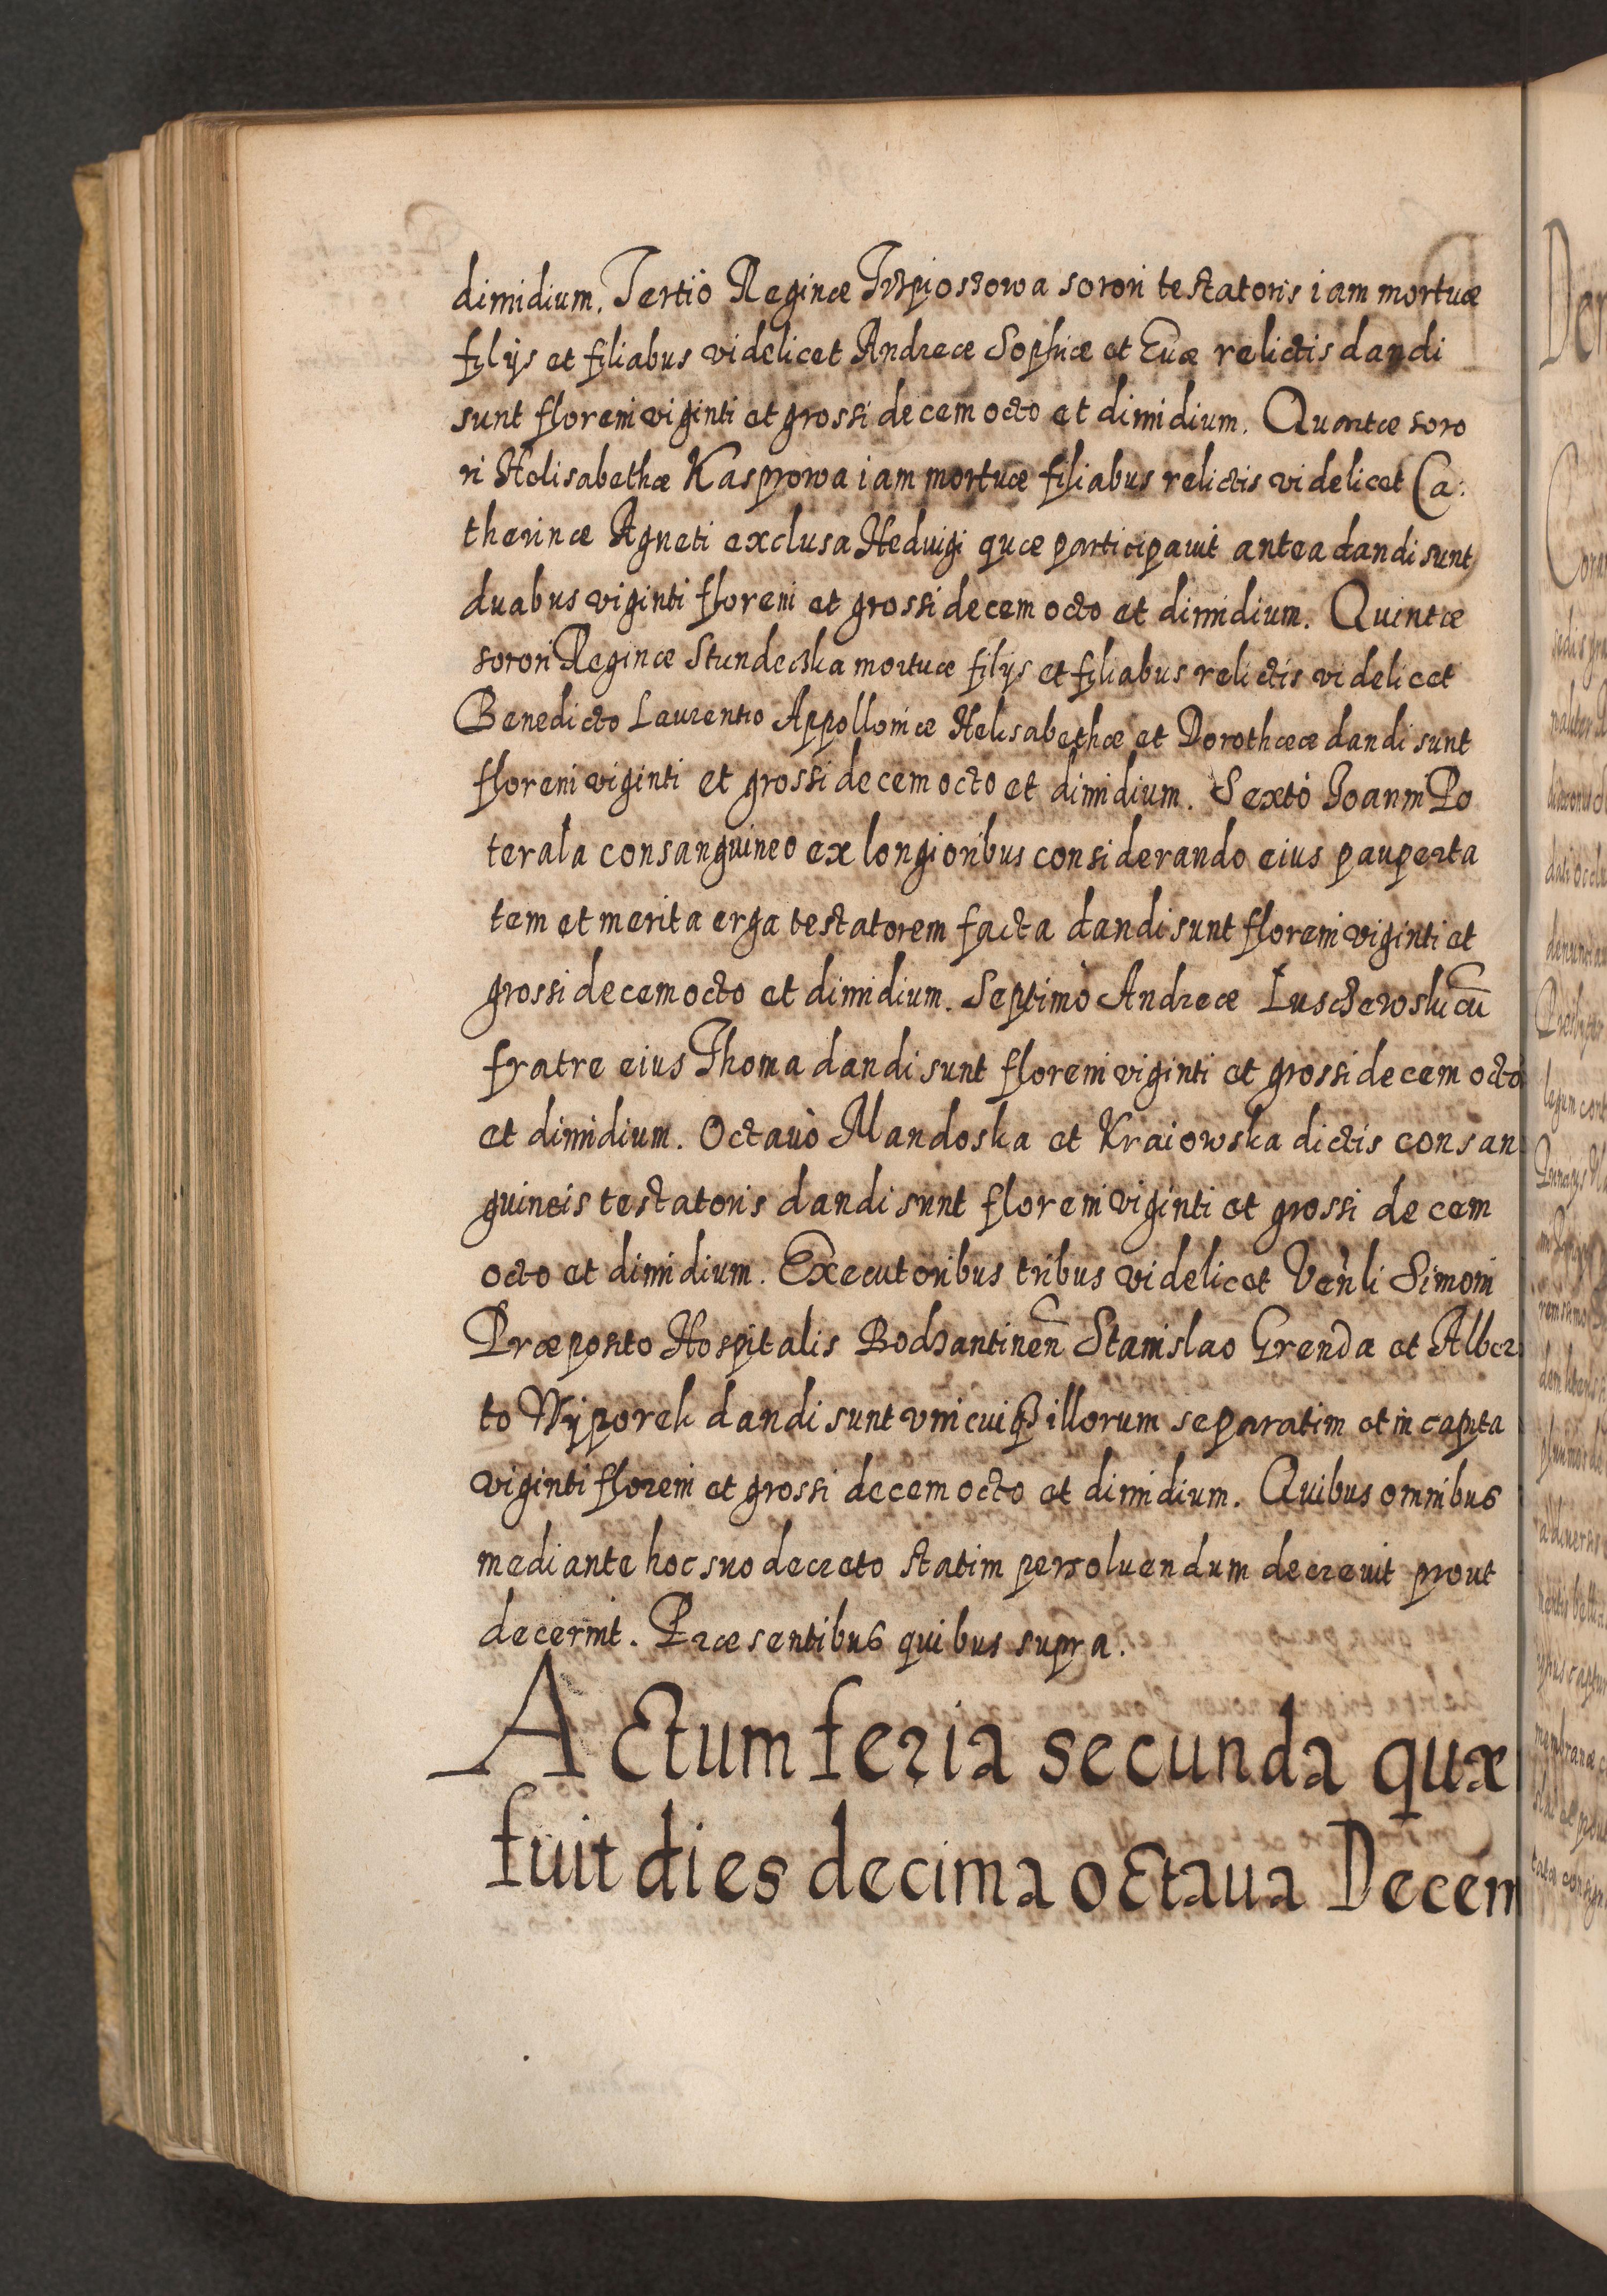 dimidium. Tertiò Reginæ sorori testatoris iam mortuæ
filijs et filiabus videlicet Andreæ Sophiæ et Euæ relictis dandi
sunt floreni viginti et grossi decem octo et dimidium. Quartæ soro
ri Helisabethæ Kasprowa iam mortuæ filiabus relictis videlicet Ca:
therinæ Agneti exclusa Heduigi quæ participauit antea dandi sunt
duabus viginti floreni et grossi decem octo et dimidium. Quintæ
sorori Reginæ mortuæ filijs et filiabus relictis videlicet
Benedicto Laurentio Appolloniæ Helisabethæ et Dorotheæ dandi sunt
floreni viginti et grossi decem octo et dimidium. Sextò Joanni Po
terala consanguineo ex longioribus considerando eius pauperta
tem et merita erga testatorem facta dandi sunt floreni viginti et
grossi decem octo et dimidium. Septimò Andreæ cū
fratre eius Thoma dandi sunt floreni viginti et grossi decem octo
et dimidium. Octauò Mandoska et Kraiowska dictis consan
guineis testatoris dandi sunt floreni viginti et grossi decem
octo et dimidium. Executoribus tribus videlicet Venli Simoni
Præposito Hospitalis Bodzantinen Stanislao Grenda et Alber
to Wyporek dandi sunt vnicuiqȝ illorum separatim et in capita
viginti floreni et grossi decem octo et dimidium. Quibus omnibus
mediante hoc suo decreto statim persoluendum decreuit prout
decernit. Præsentibus quibus supra.
Actum feria secunda quæ
fuit dies decima octaua Decem